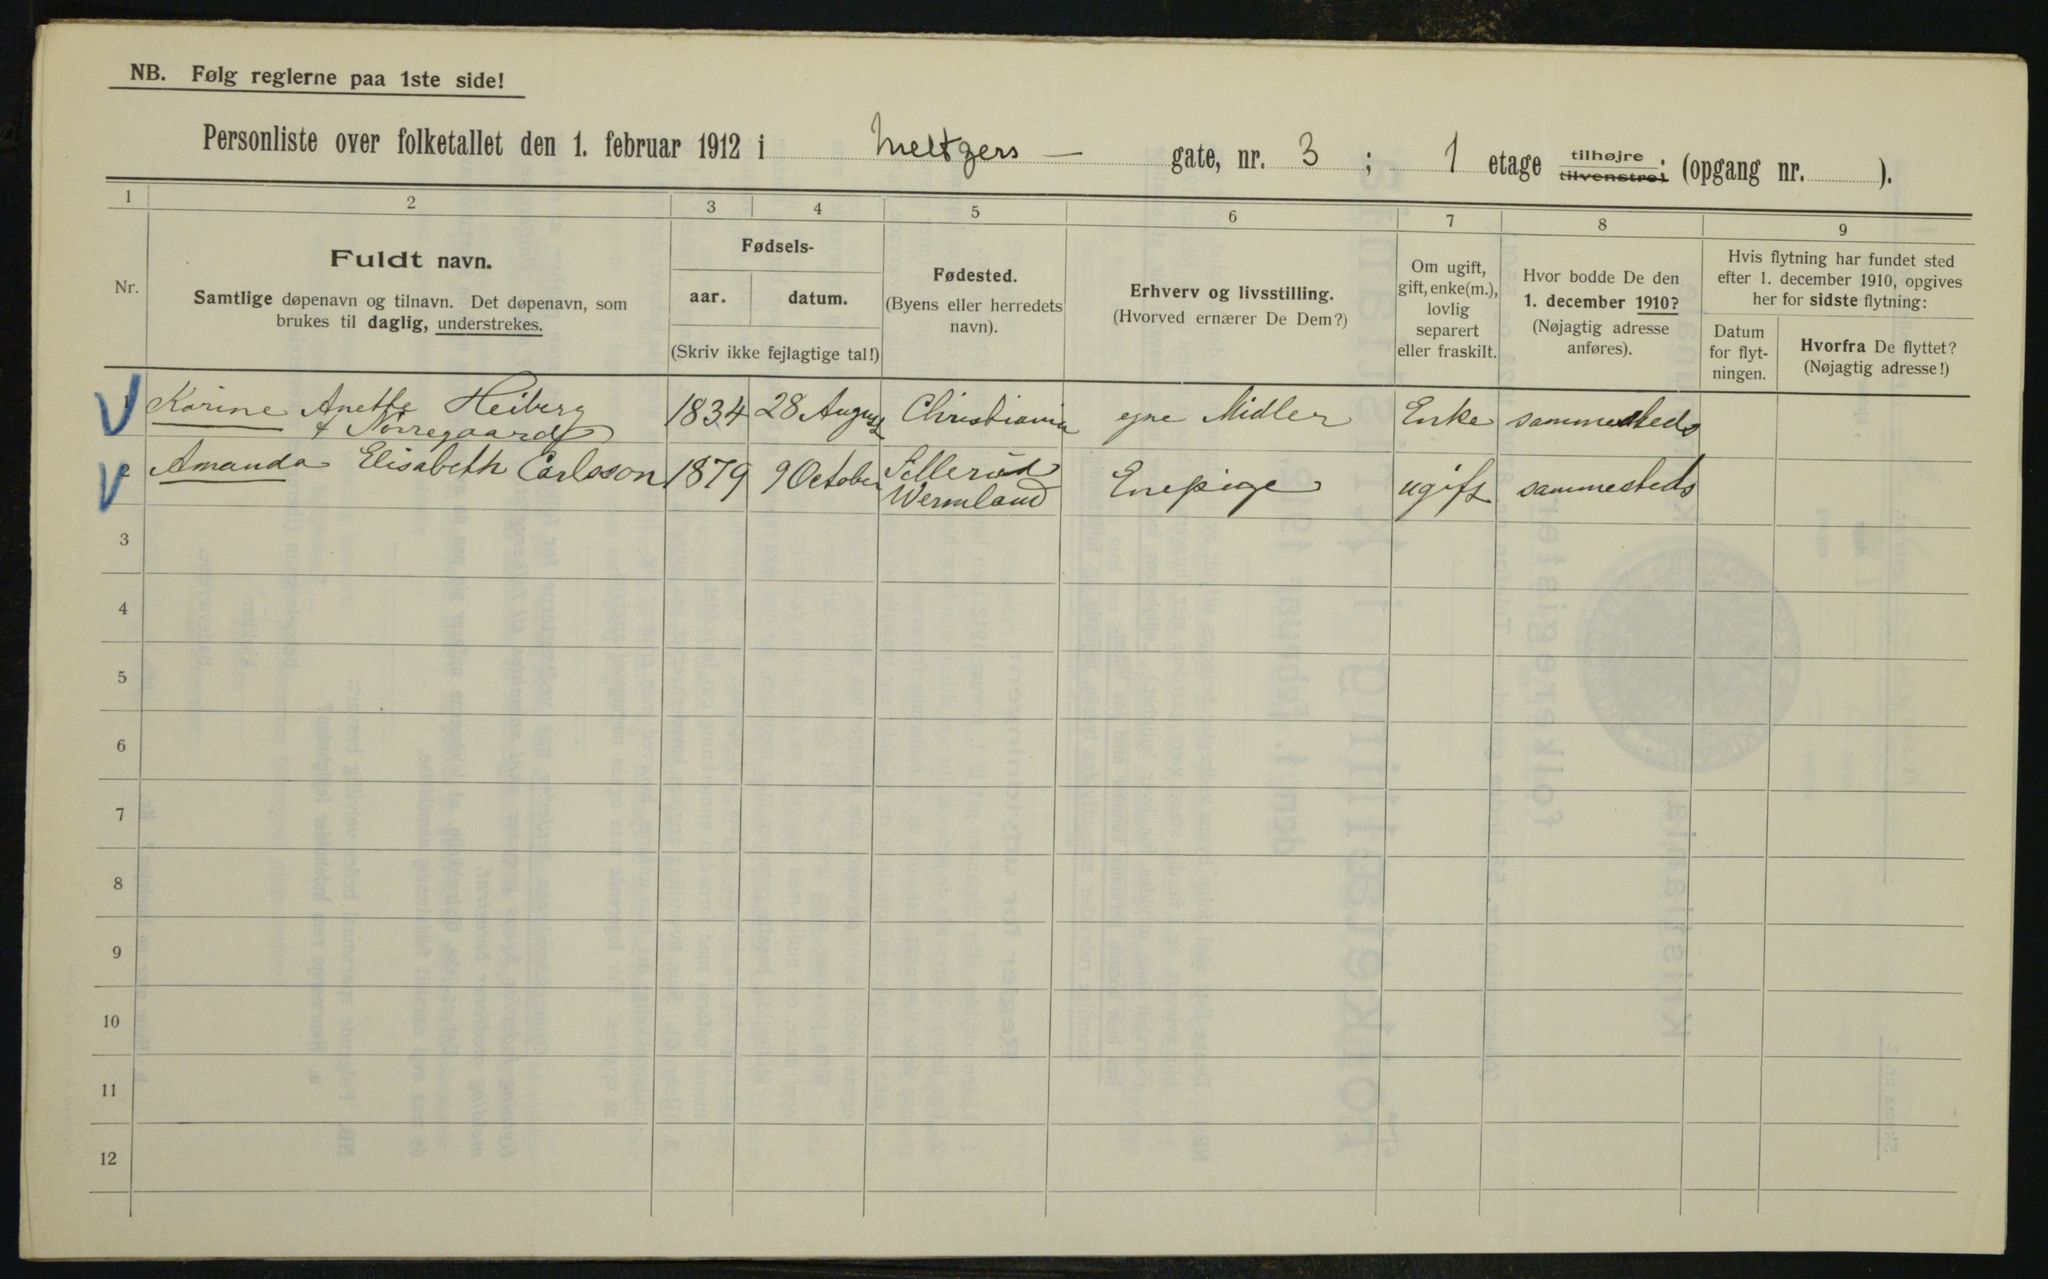 NB. Følg reglerne paa 1ste side!
Personliste over folketallet den 1. februar 1912 i Meltzers — gate, nr. 3 ; 1 etage tilhøjre tilvenstre. (opgang nr. ).
1 2 3 4 5 6 7 8 9
Nr.
Fuldt navn.
Samtlige døpenavn og tilnavn. Det døpenavn, som
brukes til daglig, understrekes.
Fødsels-
aar. datum.
(Skriv ikke fejlagtige tal!)
Fødested.
(Byens eller herredets
navn).
Erhverv og livsstilling.
(Hvorved ernærer De Dem?)
Om ugift,
gift, enke(m.),
lovlig
separert
eller fraskilt.
Hvor bodde De den
1. december 1910?
(Nøjagtig adresse
anføres).
Hvis flytning har fundet sted
efter 1. december 1910, opgives
her for sidste flytning:
Datum
for flyt-
ningen.
Hvorfra De flyttet?
(Nøjagtig adresse!)
1 Karine Anette Heiberg 1834 28 August Christiania egne Midler Enke sammesteds
f Nørregaard
2 Amanda Elisabeth Carlsson 1879 9 October Sillerud Enepige ugift sammesteds
Wermland
3
4
5
6
7
8
9
10
11
12